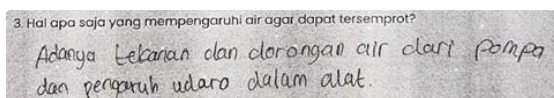 3. Hal apa saja yang mempengaruhi air agar dapat tersemprot?
Adanya tekanan dan dorongan air dari pompa
dan pengaruh udara dalam alat.